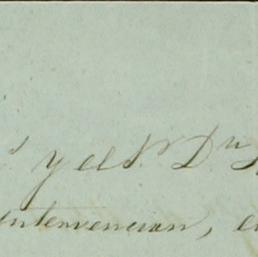 y el S.r D.n
intervencion,